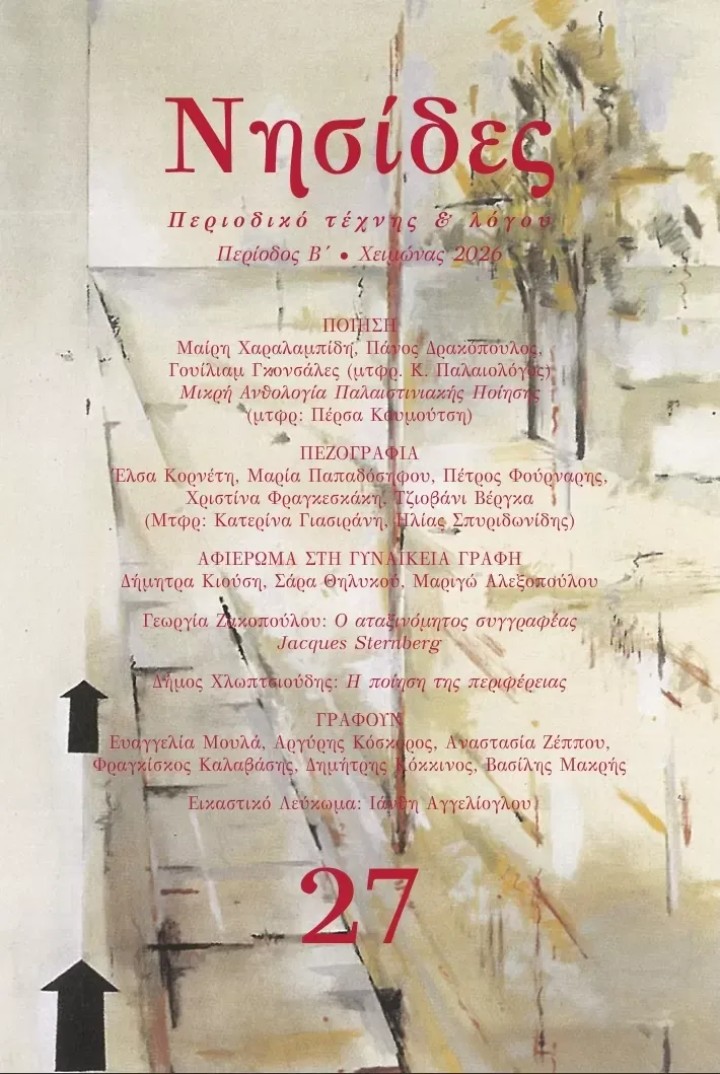 Νησίδες
Περιοδικό τέχνης & λόγου
Περίοδος Β΄ • Χειμώνας 2026
ΠΟΙΗΣΗ
Μαίρη Χαραλαμπίδη, Πάνος Δρακόπουλος,
Γουίλιαμ Γκονσάλες (μτφρ. Κ. Παλαιολόγος)
Μικρή Ανθολογία Παλαιστινιακής Ποίησης
(μτφρ: Πέρσα Κουμούτση)
ΠΕΖΟΓΡΑΦΙΑ
Έλσα Κορνέτη, Μαρία Παπαδόσηφου, Πέτρος Φούρναρης,
Χριστίνα Φραγκεσκάκη, Τζιοβάνι Βέργκα
(Μτφρ: Κατερίνα Γιασιράνη, Ηλίας Σπυριδωνίδης)
ΑΦΙΕΡΩΜΑ ΣΤΗ ΓΥΝΑΙΚΕΙΑ ΓΡΑΦΗ
Δήμητρα Κιούση, Σάρα Θηλυκού, Μαριγώ Αλεξοπούλου
Γεωργία Ζακοπούλου: Ο αταξινόμητος συγγραφέας
Jacques Sternberg
Δήμος Χλωπτσιούδης: Η ποίηση της περιφέρειας
ΓΡΑΦΟΥΝ
Ευαγγελία Μουλά, Αργύρης Κόσκορος, Αναστασία Ζέππου,
Φραγκίσκος Καλαβάσης, Δημήτρης Κόκκινος, Βασίλης Μακρής
Εικαστικό Λεύκωμα: Ιάνθη Αγγελίογλου
27